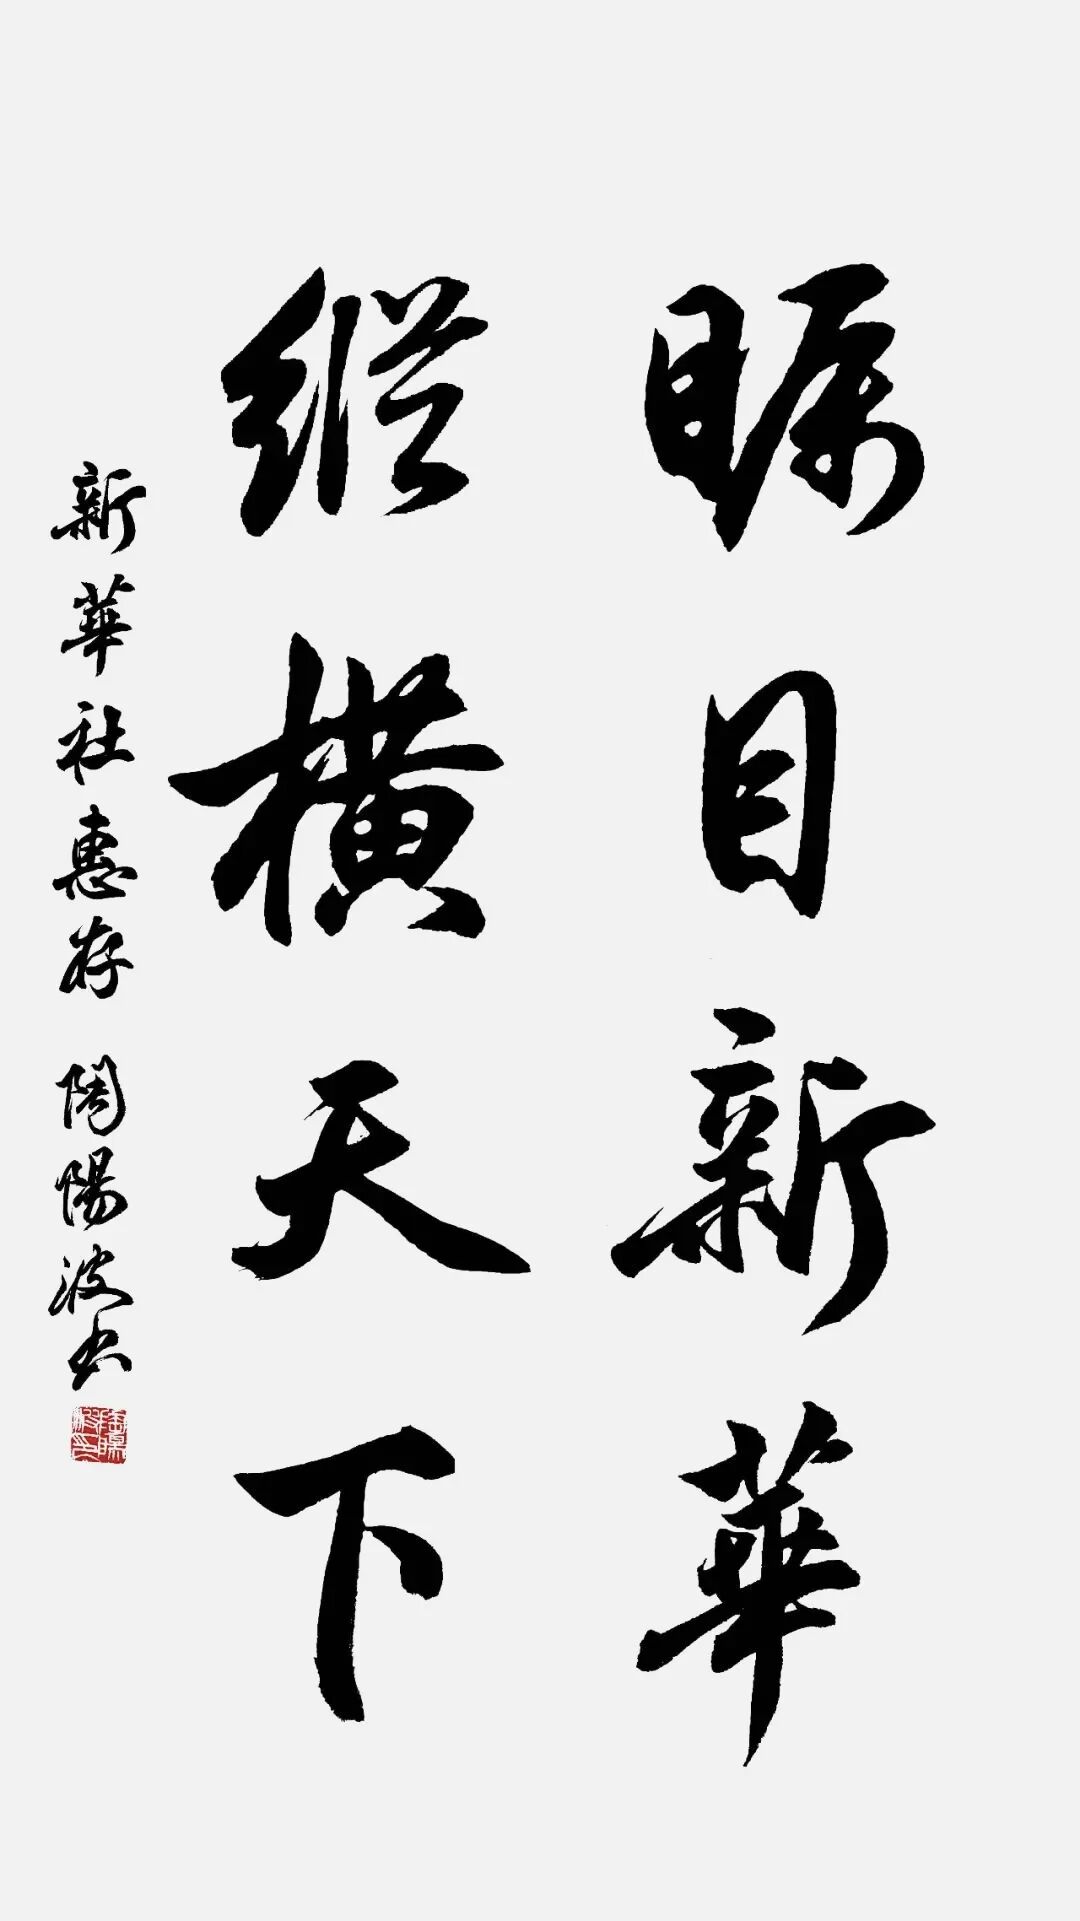 瞩目新華
縱横天下
新華社惠存 陶陽波书